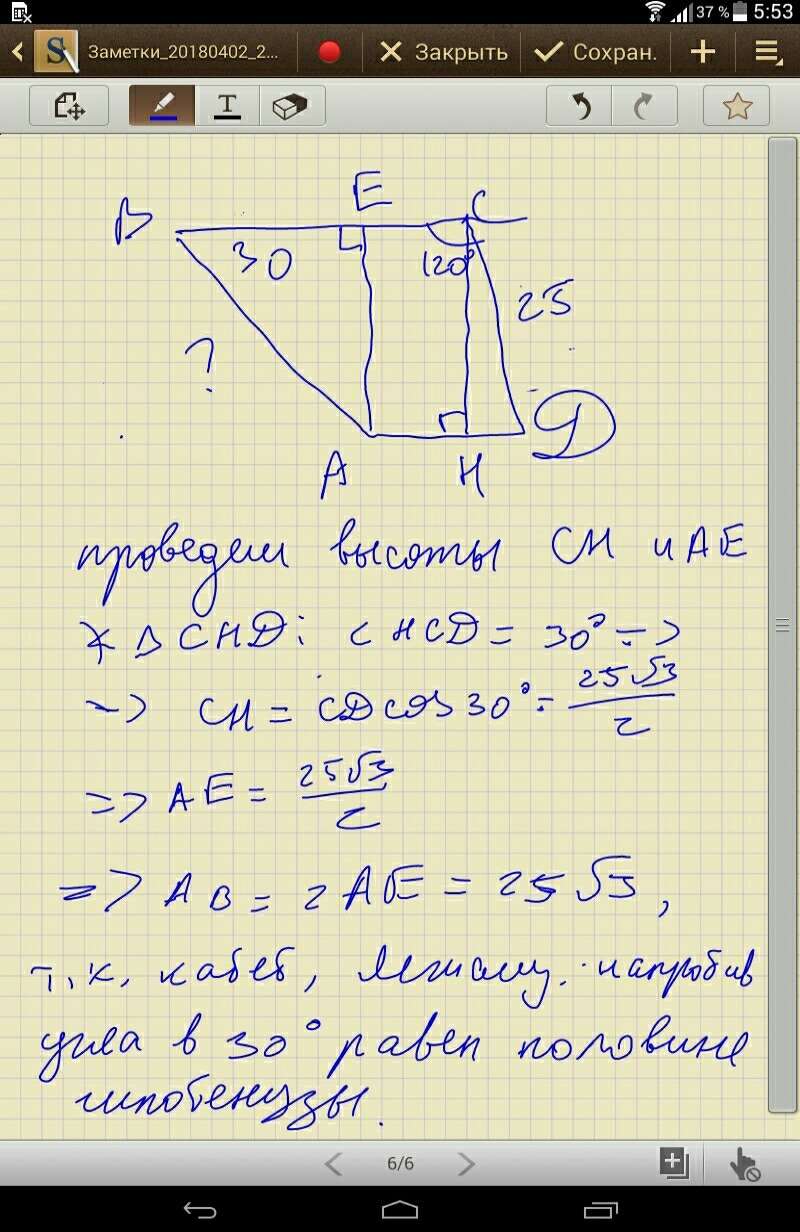 37 % 5:53
S Заметки_20180402_2... Закрыть Сохран.
T
E C
B
30 120°
25
?
D
A H
проведем высоты CH и AE
△CHD: ∠HCD = 30° =>
=> CH = CD cos 30° = 25√3/2
=> AE = 25√3/2
=> AB = 2AE = 25√3,
т.к. катет, лежащ. напротив
угла в 30° равен половине
гипотенузы.
6/6